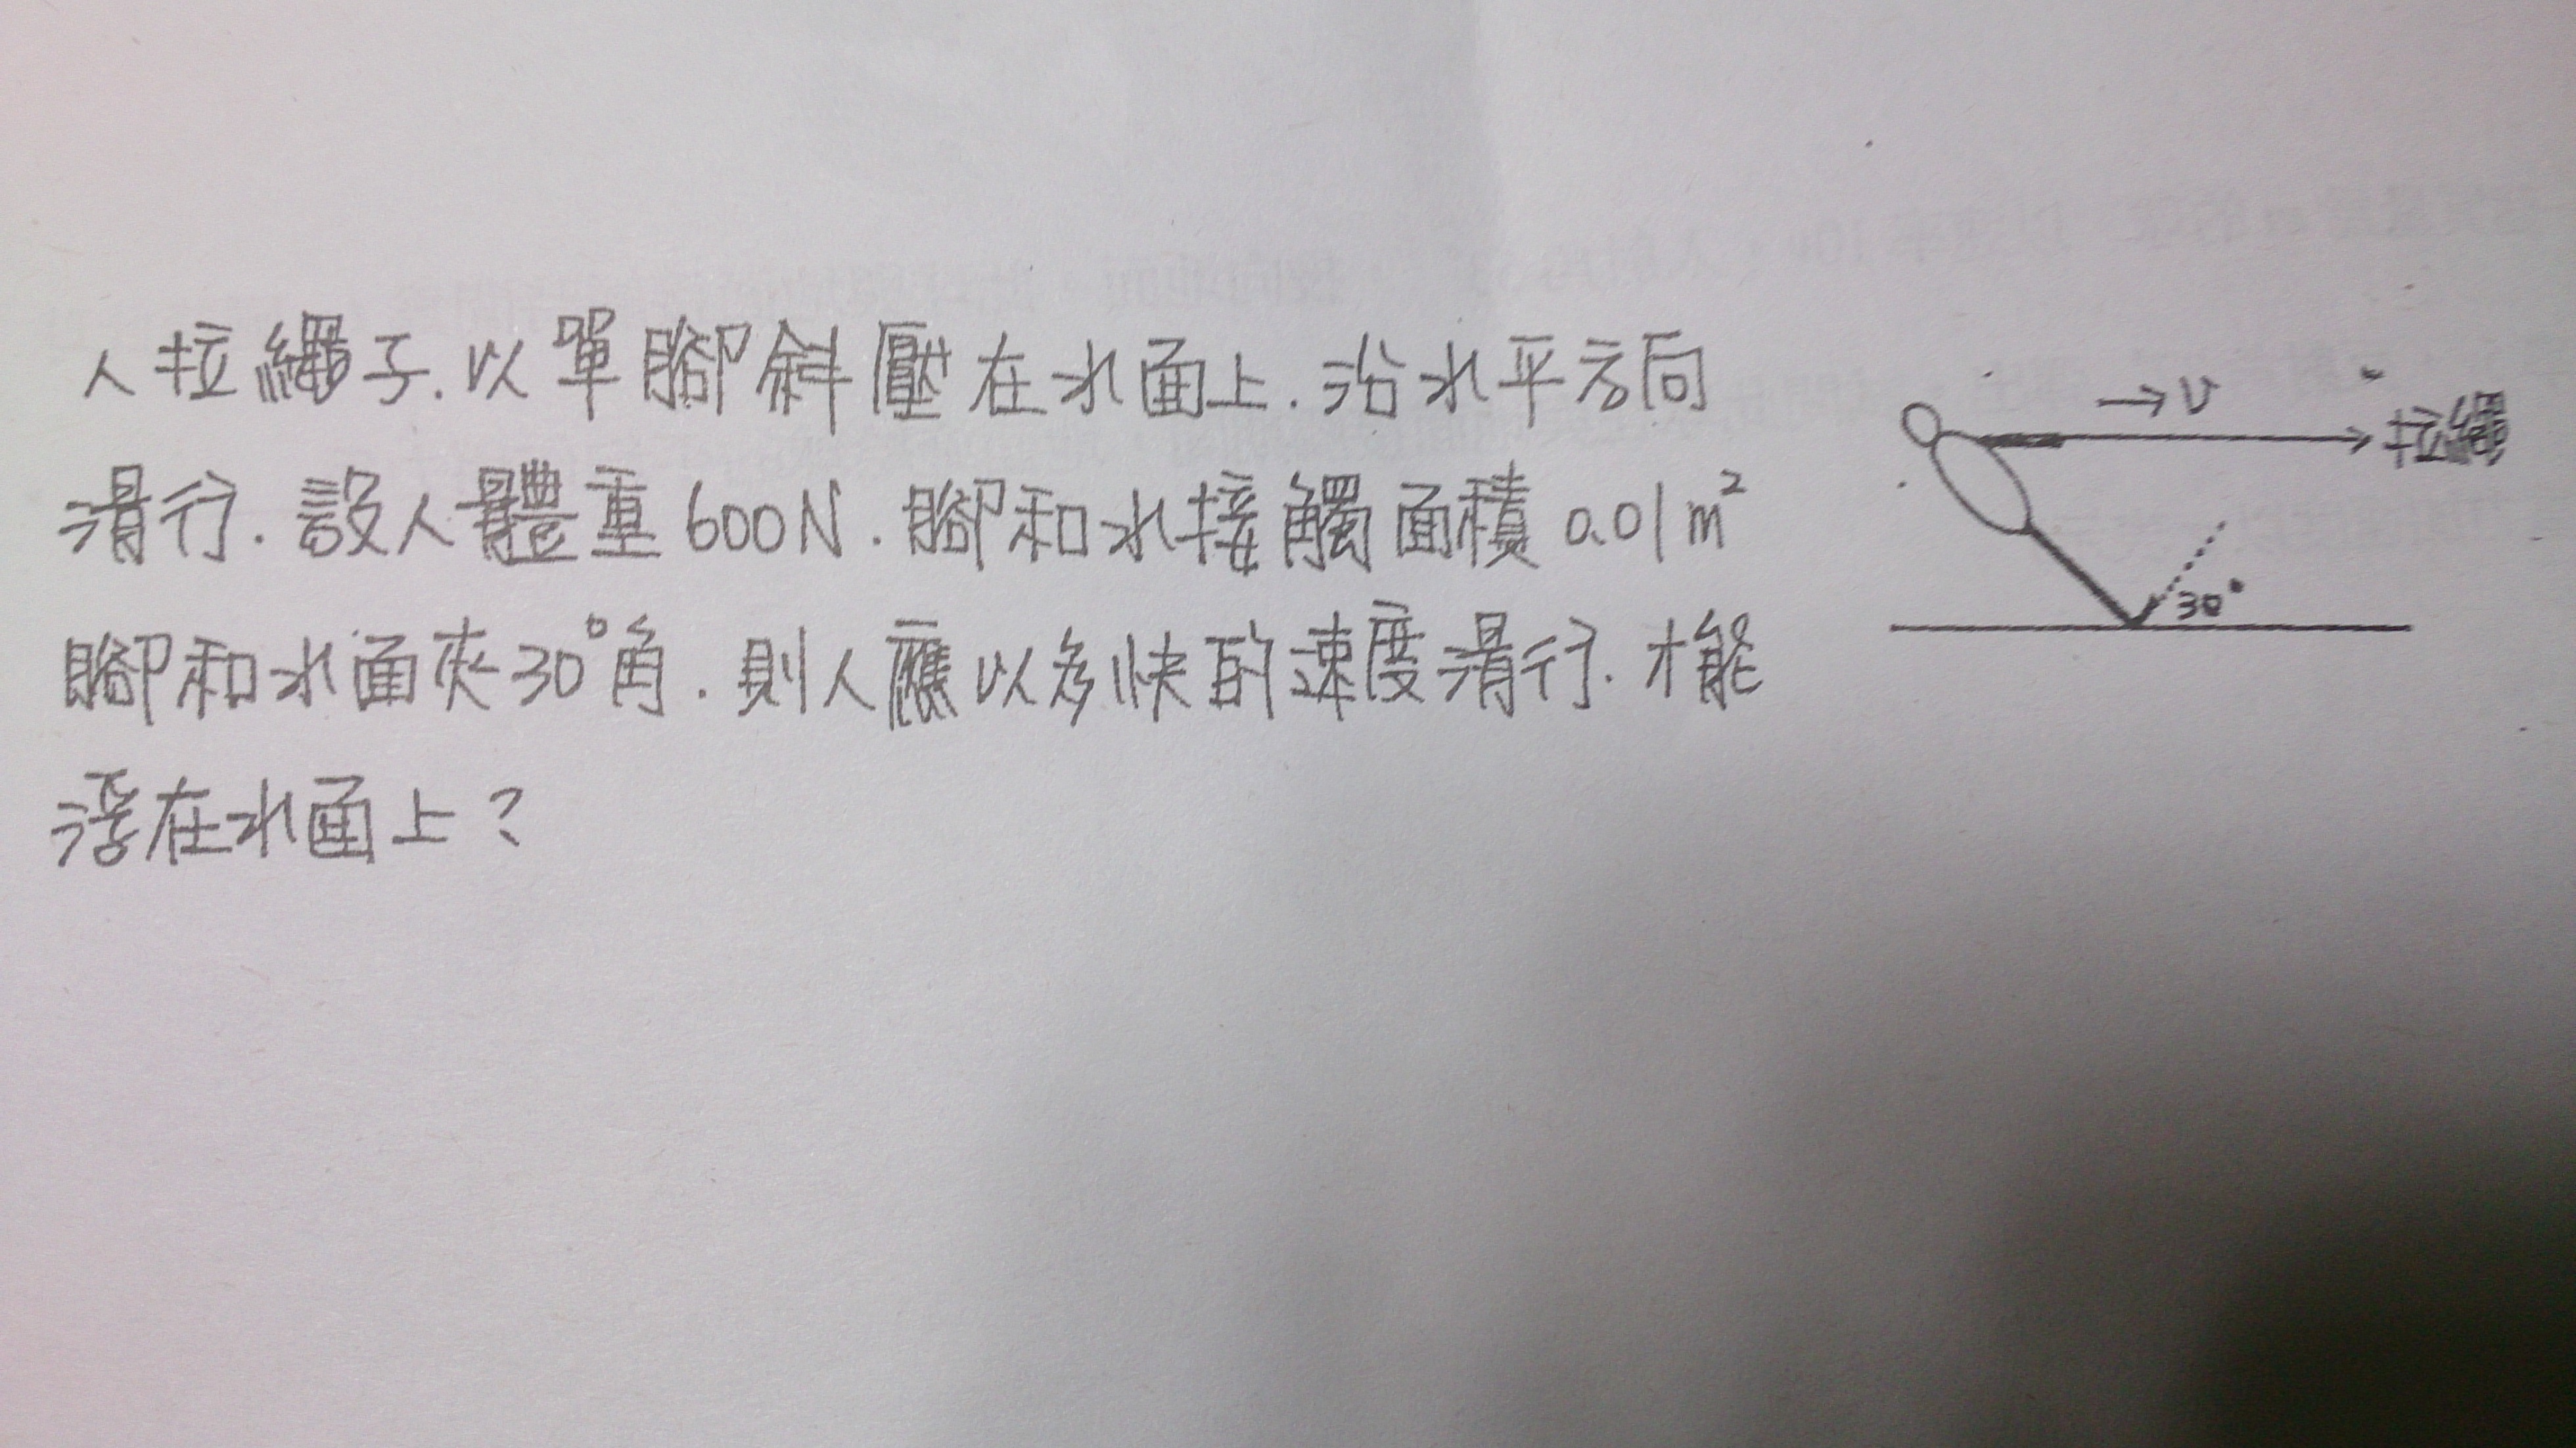 人拉繩子.以單腳斜壓在水面上.沿水平方向
滑行.設人體重600N.腳和水接觸面積0.01m²
腳和水面夾30°角.則人應以多快的速度滑行.才能
浮在水面上?
→v
拉繩
30°